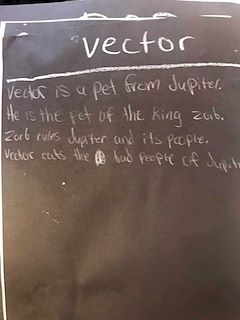 vector
Vector is a pet from Jupiter.
He is the pet of the king zorb.
Zorb rules Jupiter and its people.
Vector eats the bad people of Jupiter